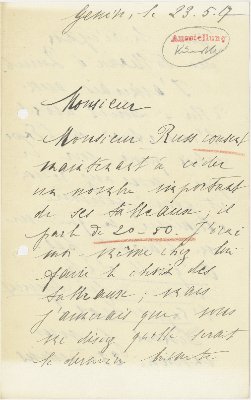 Genève, le 23.5.17
Ausstellung
Monsieur
Monsieur Russ consent
maintenant à céder
un nombre important
de ses tableaux; il
parle de 20-50. J'irai
moi même chez lui
faire le choix des
tableaux; mais
j'aimerais que vous
me disiez quelle serait
la dernière limite